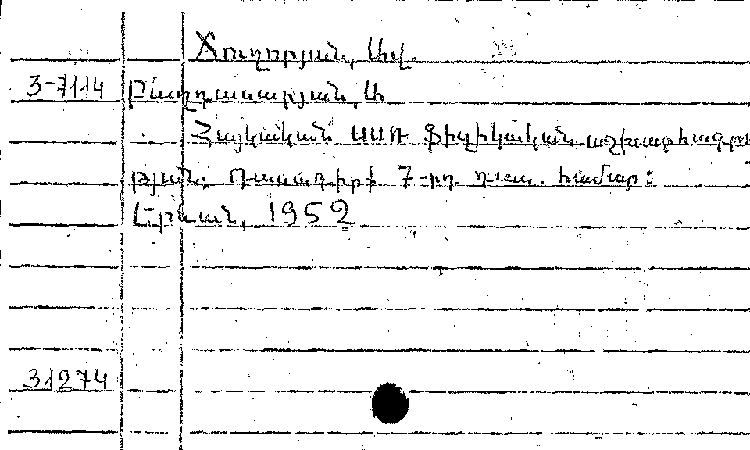 Ճուղուրյան, Ավ.
3-7114 Բաղդասարյան, Ա
Հայկական ՍՍՌ Ֆիզիկական աշխարհագրու
թյան: Դասագիրք 7-րդ դաս. համար:
Երևան, 1952
31274